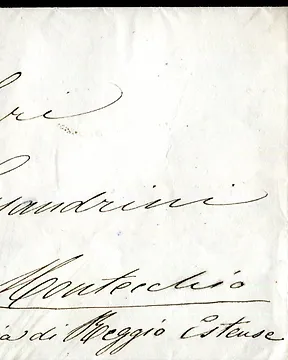 ri
sandrini
Montecchio
a di Reggio Estense